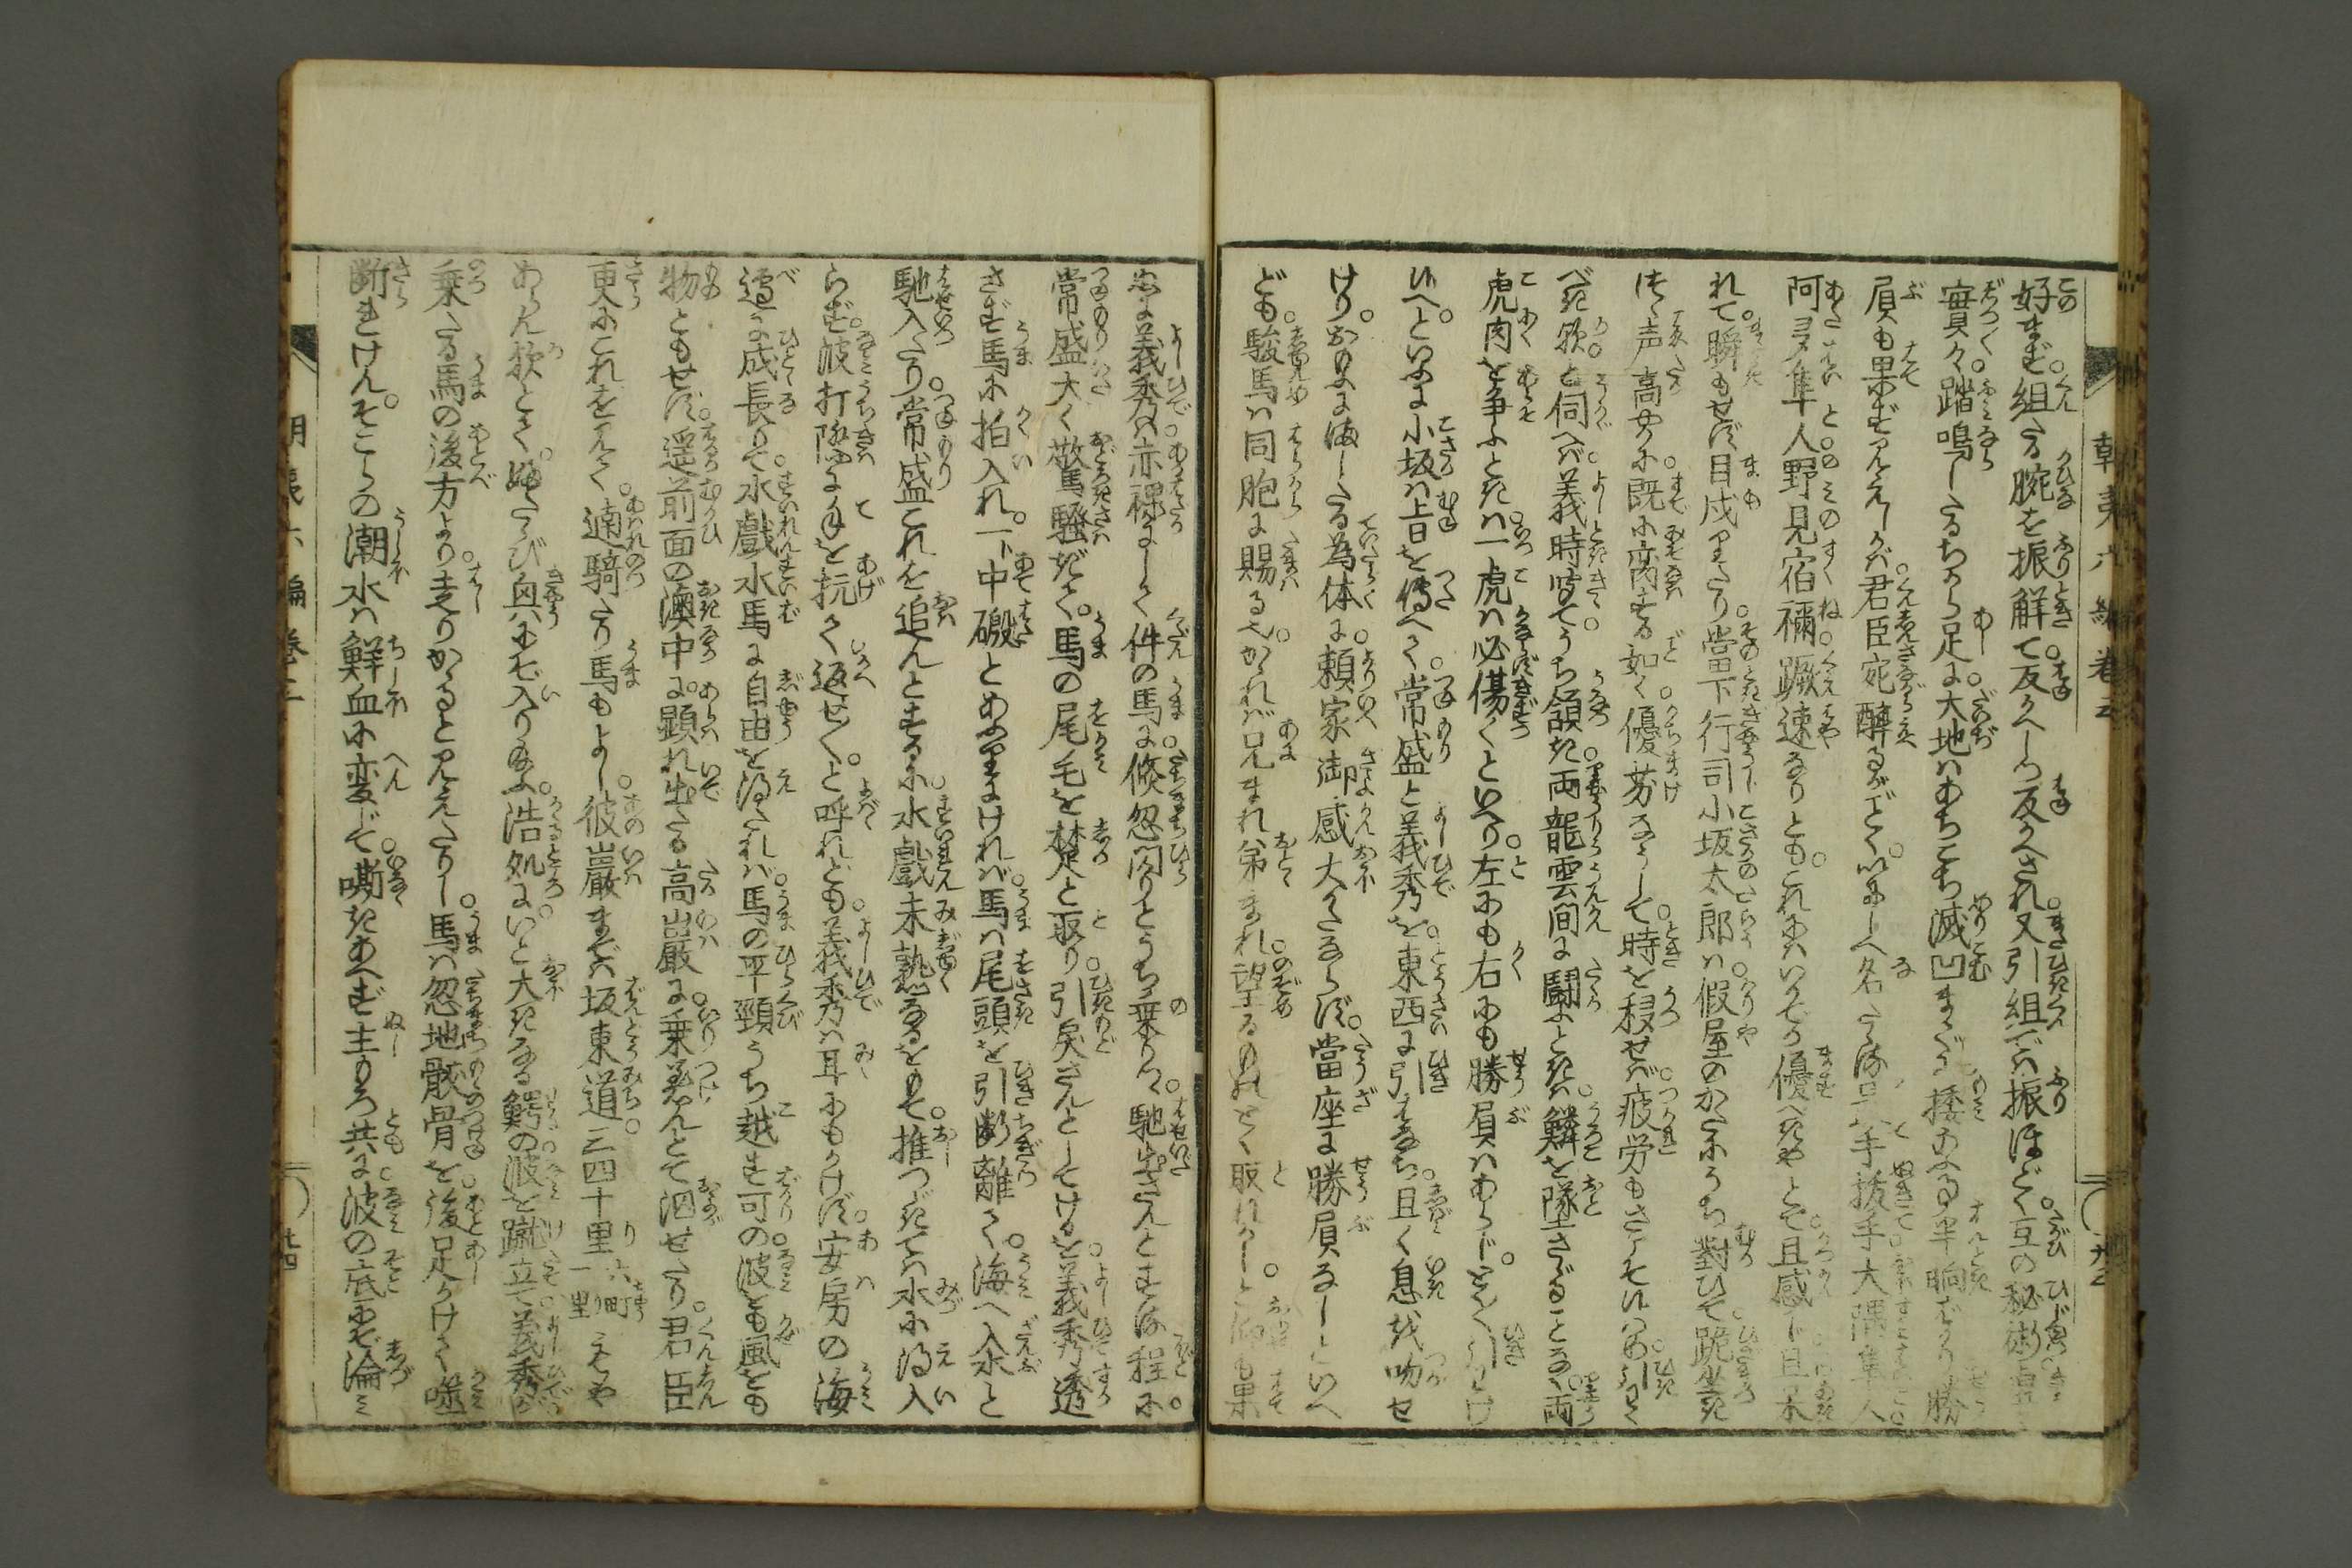 好まず。組たる腕を振解て。反かへしつ反かへされ。又引組では振ほどく。互の秘術
實々。踏鳴したるちから足に。大地はあちこち滅凹まで。捿あへる半晌ばかり。勝
負も果ず見えしかば。君臣宛酔るがごとく。いにしへ名たゝる手技手大隅隼人
阿多隼人と。野見宿禰。蹶速なりとも。これにはいかでか優べきやとて。且感じ且呆
れて。瞬もせず目戍りたり。當下行司小坂太郎は。假屋のかたにうち對ひて。跪坐き
つゝ声高やかに。既に齋はする如く。優劣なうして。時を移せば。疲労もさこそはあ引わく
べき歟。と伺へば。義時聞て。うち頷き。両龍雲間に闘ふときは。鱗を墜さゞることなく。両
虎肉を争ふときは。一虎は必傷くといへり。左にも右にも勝負はあらじ。とく引わけ
候へ。といふに小坂は旨を傳へて。常盛と義秀を。東西に引わかち。且く息を吻せ
けり。かのにましたる為体に。頼家御感大かたならず。當座に勝負なしといへ
ども。駿馬は同胞に賜る也。かゝれば兄まれ弟まれ。望るものとく取れかし。と仰も果
ぬに義秀は。赤裸にして件の馬に。倏忽閃りとうち乗りて。馳出さんとする程に。
常盛大く驚騒ぎて。馬の尾毛を楚と取り。引戻さんとしてけるを。義秀透
さず馬に拍入れ。一下中礑とあふりければ。馬は尾頭を引断離て。海へ入水と
馳入たり。常盛これを追んとするに。水戲未熟なるをもて。推つゞきては水に得入
らず。波打際に手を抗て。返せ〳〵。と呼れども。義秀は耳にもかけず。安房の海
邊に成長りて。水戲水馬に自由を得たれば。馬の平頸うち越す可の。波とも風とも
物ともせず。遥前面の澳中に。顕れ出たる高巌に。乗着んとて泅せたり。君臣
更にこれを見て。遖騎たり馬もよし。彼巌までは坂東道三四十里一里六町もや
あらん歟とて。めでたゝび興にぞ入り給ふ。浩処に。いと大きなる鰐の。波を蹴立て義秀が
乗たる馬の後方より。走りかゝると見えたりし。馬は忽地骸骨を。後足かけて噬
断れけん。そこらの潮水は鮮血に変じて。嘶きあへず主もろ共に。波の底にぞ淪み